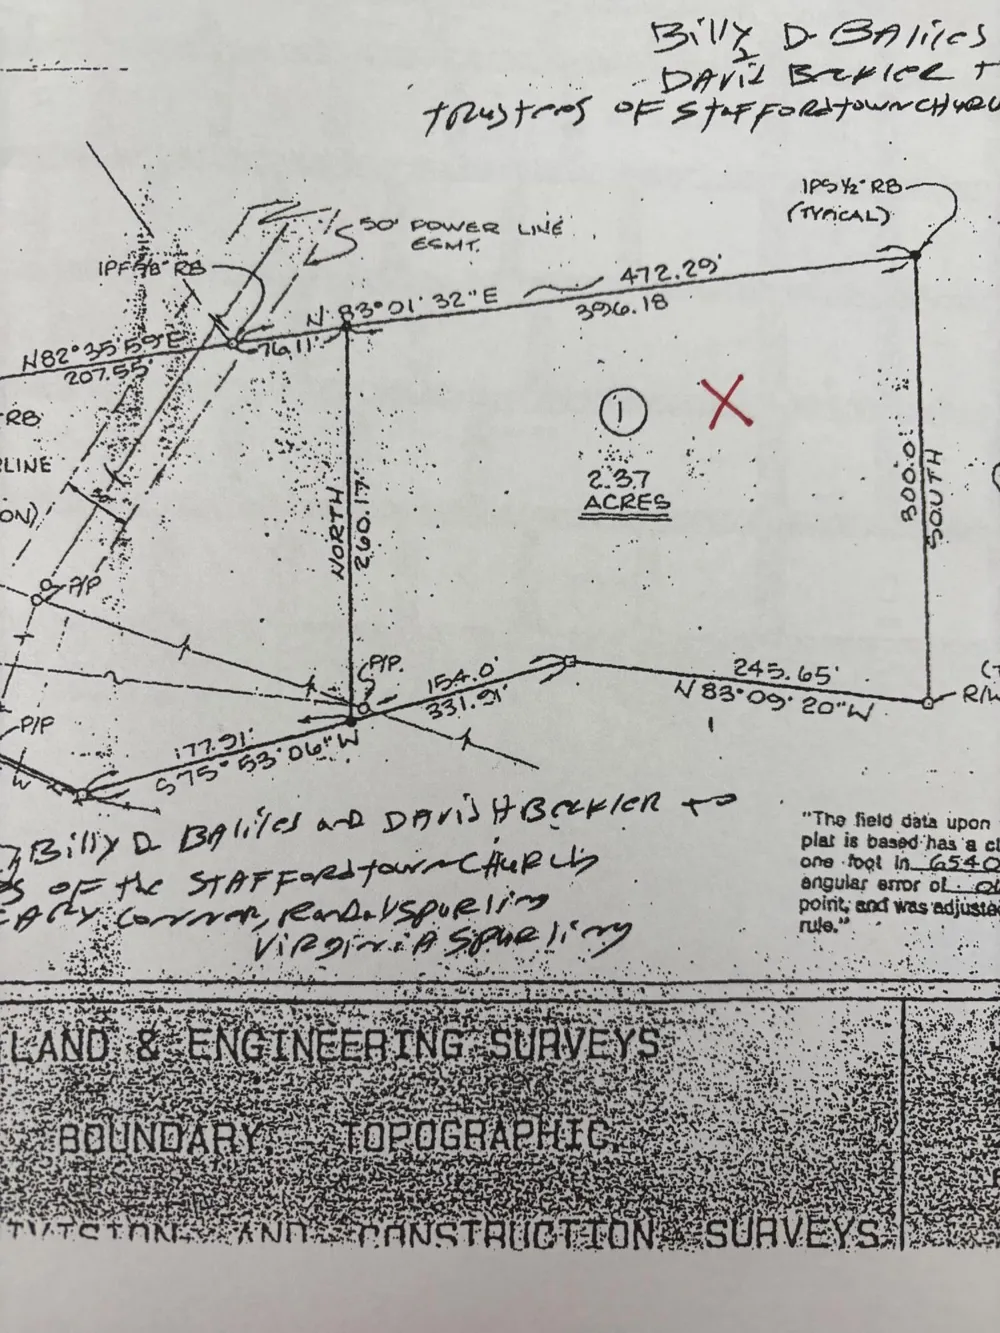 Billy D BAliles
DAVid Beckler
trustees OF StAFFordtownCHURC
IPS ½" RB
(TYPICAL)
50' POWER LINE
ESMT.
IPF 5/8" RB
472.29'
N 83°01' 32"E
396.18
N82°35'59"E
76.11'
207.55'
RB
1
LINE
2.37
ACRES
ON)
NORTH
260.17'
300.0'
SOUTH
P/P
P/P.
154.0'
331.91'
245.65'
N 83°09' 20"W
R/W
P/P
177.91'
S75°53'06"W
Billy D BAliles anD DAVid H Beckler
OF the STAFFordtownCHURCH
Randal Spurling
VirginiA Spurling
"The field data upon
plat is based has a cl
one foot in 6540
angular error of
point, and was adjuste
rule."
LAND & ENGINEERING SURVEYS
BOUNDARY, TOPOGRAPHIC,
IVISION, AND CONSTRUCTION SURVEYS